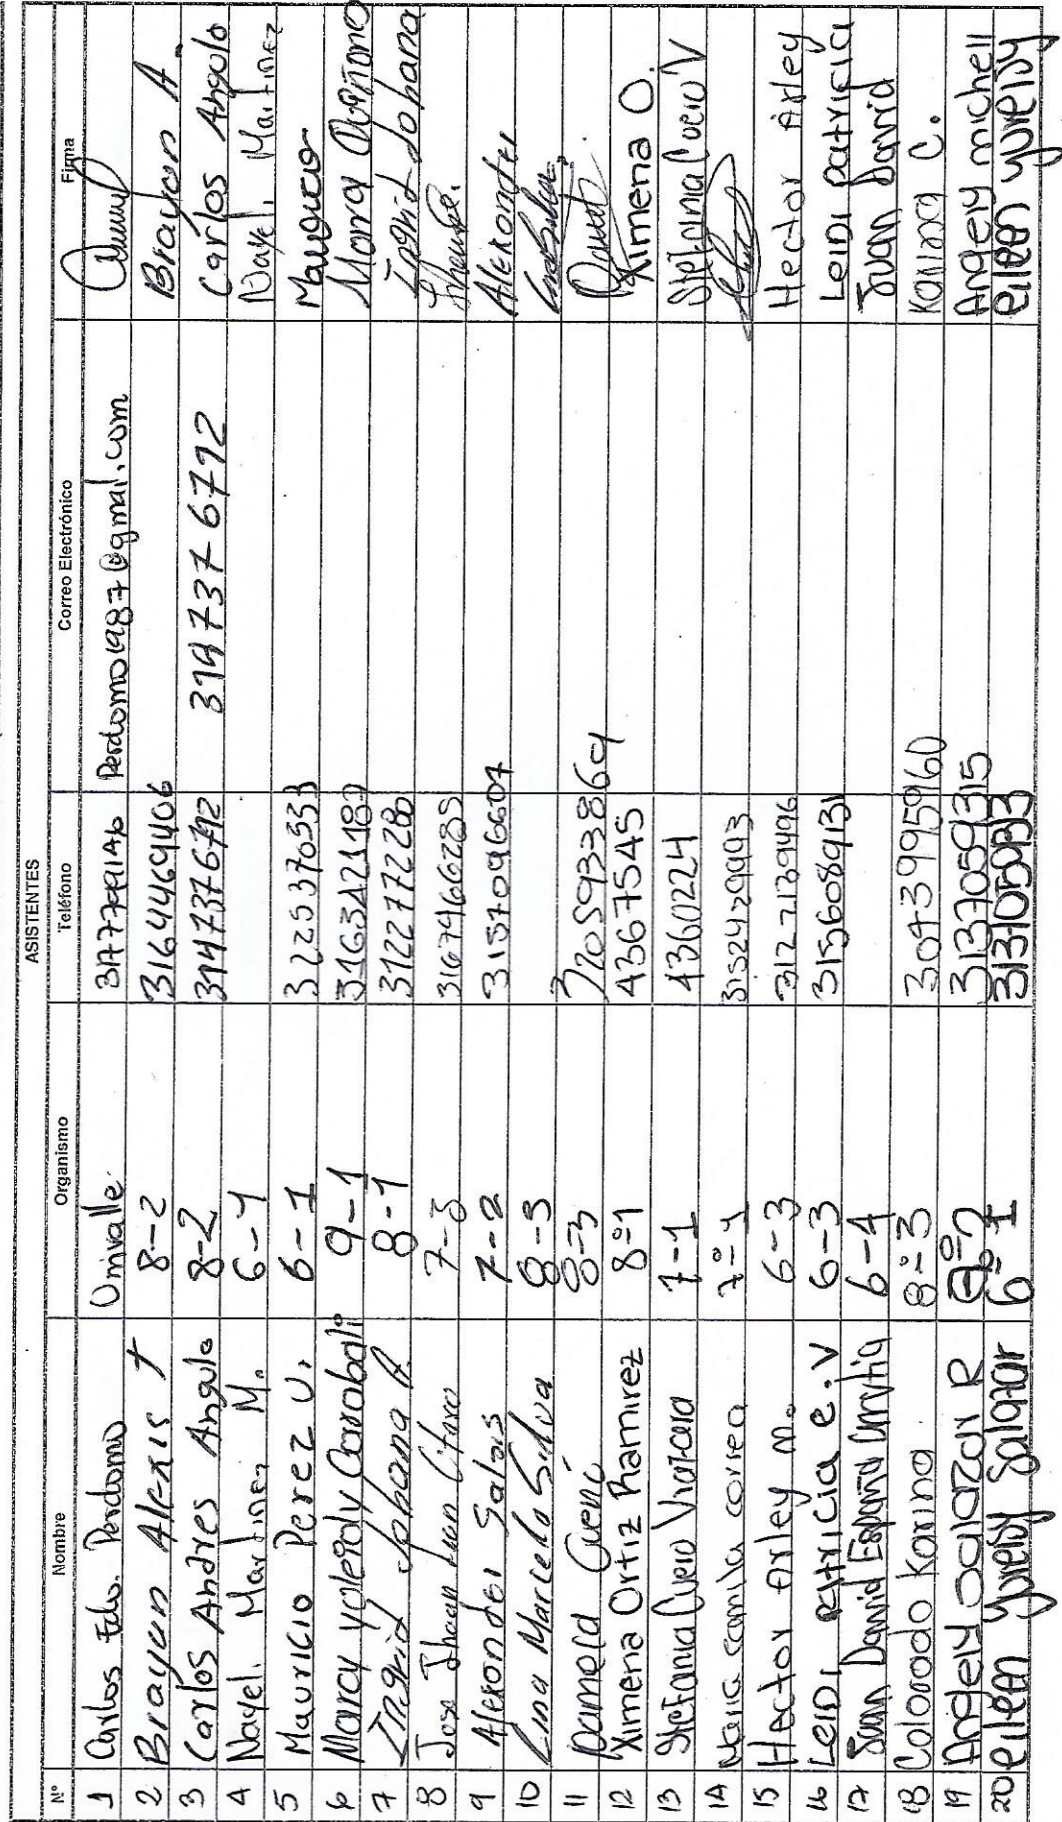 ASISTENTES
Nº Nombre Organismo Teléfono Correo Electrónico Firma
1 Carlos Edo. Perdomo Univalle Perdomo1987@gmal.com
2 Brayan Alexis T 8-2 3164469406 Brayan A.
3 Carlos Andres Angulo 8-2 3147376792 3147376792 Carlos Angulo
4 Nayel. Martinez M. 6-1 Nayel. Martinez
5 Mauricio Perez U. 6-1 3225370533 Mauricio
6 Marcy yuleidy Carabali 9-1 Marcy
7 Ingrid Johana A. 8-1 3122777228 Ingrid Johana
8 Jose Jhoan 7-3 3167466285
9 Alexander Salas 7-2 3157096607 Alexander
10 Lina Marcela Silva 8-3
11 Daniela Cuenú 8=3 3205933864
12 Ximena Ortiz Ramirez 8=1 43675545 Ximena O.
13 Stefania Cuero Viafara 7-1 4360224 Stefania Cuero V
14 Maria camila correa 7=1 3152429993
15 Hector Arley m. 6-3 3127139496 Hector Arley
16 LeiDi PAtricia e.V 6-3 3156089131 LeiDi patricia
17 Juan David España 6-4 Juan David
18 Colorado Karina 8=3 3043995960 Karina C.
19 Angely Salazar R 3137059315 Angely michell
20 eileen yureisy Salazar 6=1 eileen yureisy